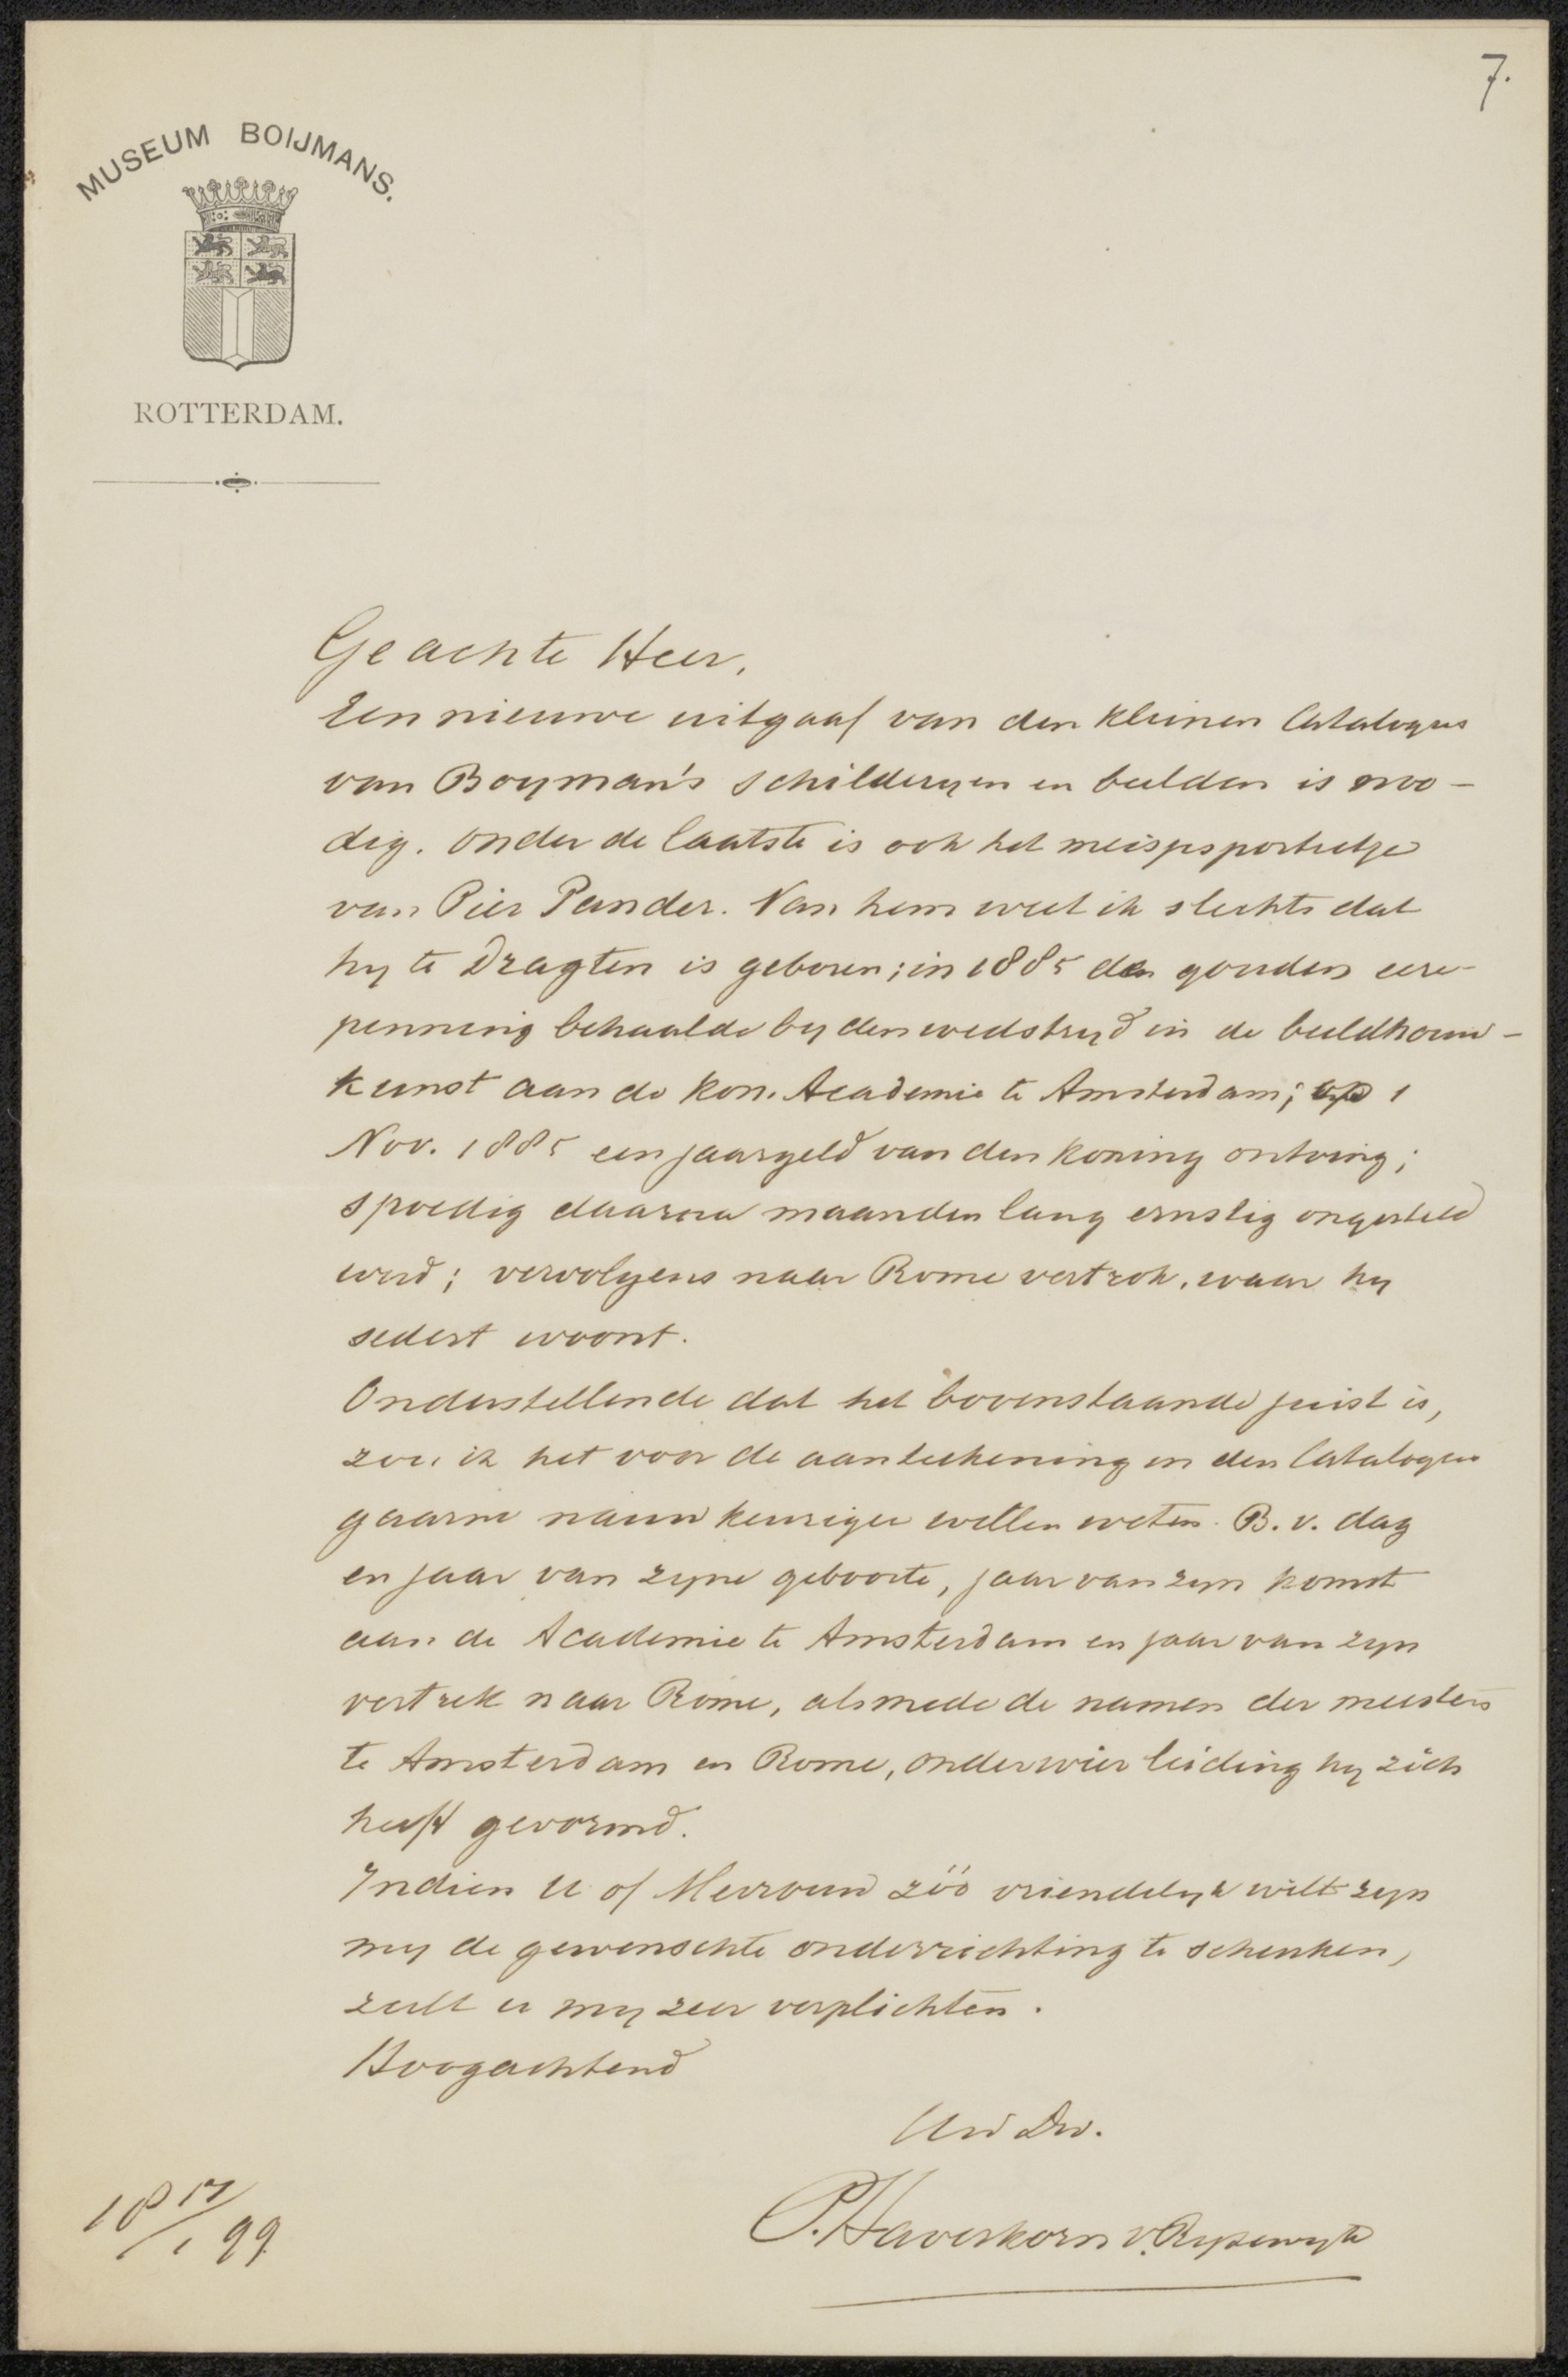 7.
MUSEUM BOIJMANS.
ROTTERDAM.
Geachte Heer,
Een nieuwe uitgaaf van den kleinen Catalogus
van Boyman's schilderyen en beelden is noo-
dig. Onder de laatste is ook het meisjesportretje
van Pier Pander. Van hem weet ik slechts dat
hy te Dragten is geboren; in 1885 den gouden eere-
penning behaalde by den wedstryd in de beeldhouw-
kunst aan de Kon. Academie te Amsterdam; op 1
Nov. 1885 een jaargeld van den koning ontving;
spoedig daarna maanden lang ernstig ongesteld
werd; vervolgens naar Rome vertrok, waar hy
sedert woont.
Onderstellende dat het bovenstaande juist is,
zou ik het voor de aanteekening in den Catalogus
gaarne nauwkeuriger willen weten. B.v. dag
en jaar van zyne geboorte, jaar van zyn komst
aan de Academie te Amsterdam en jaar van zyn
vertrek naar Rome, alsmede de namen der meesters
te Amsterdam en Rome, onder wier leiding hy zich
heeft gevormd.
Indien U of Mevrouw zóó vriendelyk wilt zyn
my de gewenschte onderrichting te schenken,
zult u my zeer verplichten.
Hoogachtend
Uw Dw.
P. Haverkorn v. Rysewyk
18 17/1 99